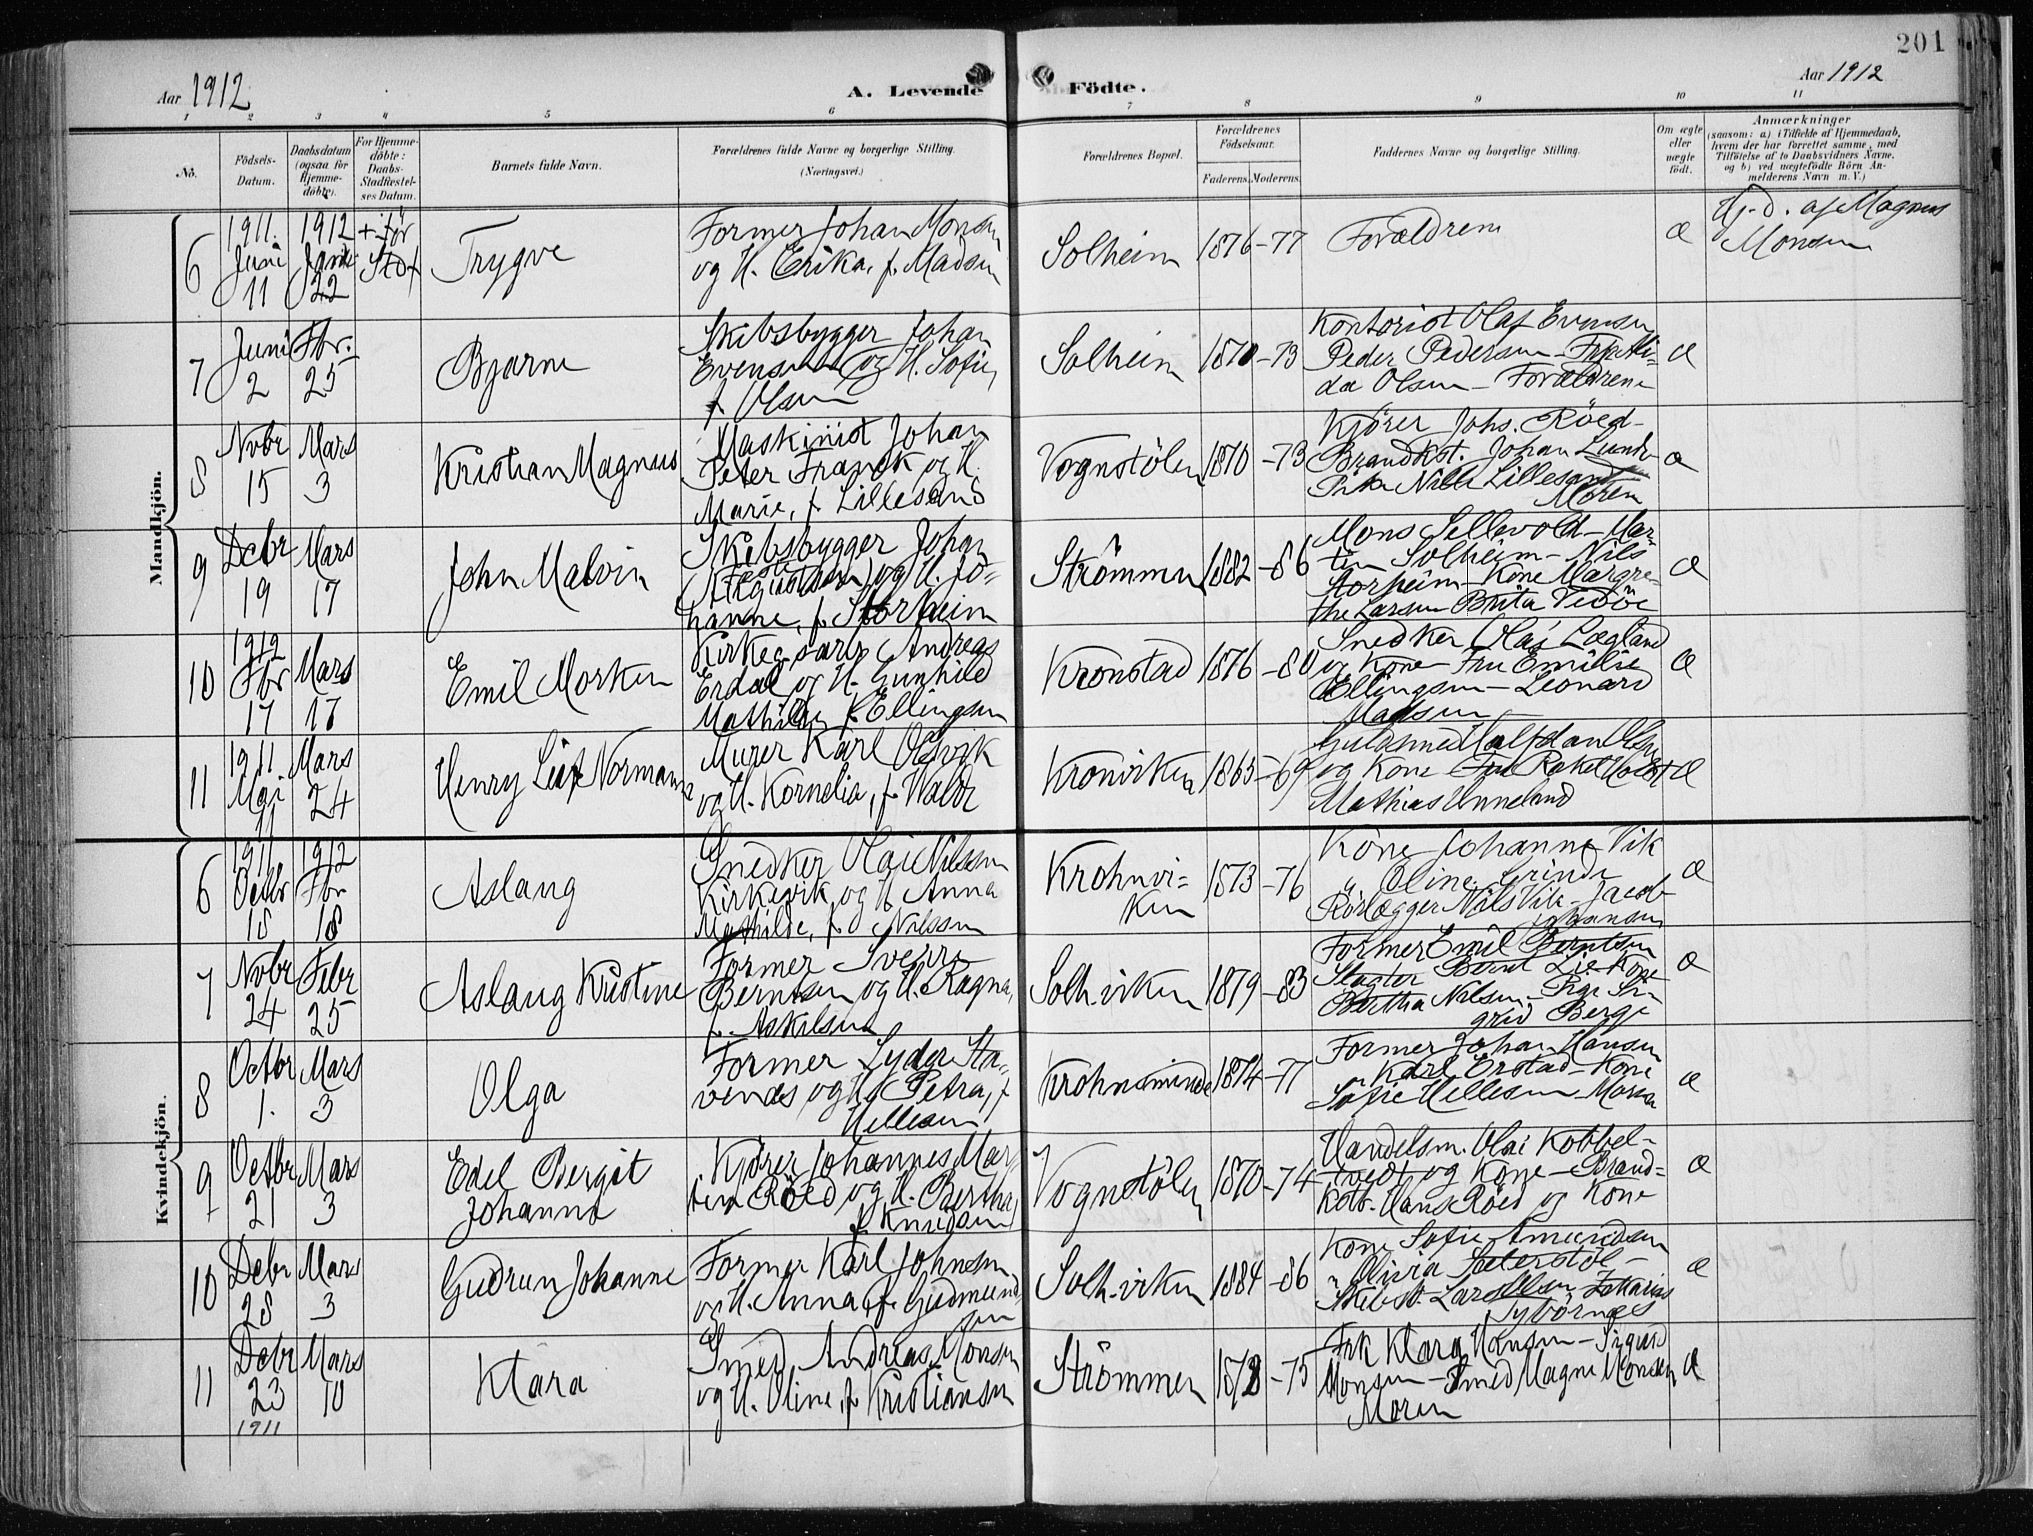 201
Aar 1912
A. Levende Födte.
Aar 1912
1 2 3 4 5 6 7 8 9 10 11
No.
Födsels-
Datum.
Daabsdatum
(ogsaa for
Hjemme-
döbte).
For Hjemme-
döbte:
Daabs-
Stadfæstel-
ses Datum.
Barnets fulde Navn.
Forældrenes fulde Navne og borgerlige Stilling.
(Næringsvei.)
Forældrenes Bopæl.
Forældrenes
Födselsaar.
Faderens. Moderens.
Faddernes Navne og borgerlige Stilling.
Om ægte
eller
uægte
födt.
Anmærkninger
(saasom: a.) i Tilfælde af Hjemmedaab,
hvem der har forrettet samme, med
Tilföielse af to Daabsvidners Navne,
og b) ved uægtefödte Börn An-
melderens Navn m. V.)
Mandkjön.
6
1911.
Juni
11
1912
22
+ för
Stdf
Trygve
Former Johan Monsen
og H. Erika, f. Madsen
Solheim
1876 -77
Forældrene
Æ
Hj. d. af Magnus
Monsen
7
Juni
2
Fbr.
25
Bjarne
Skibsbygger Johan
Evensen og H. Sofie,
f. Olsen
Solheim
1870 -73
Kontorist Olaf Evensen
Peder Pedersen - Frk
da Olsen - Forældrene
Æ
8
Nvbr
15
Mars
3
Kristian Magnus
Maskinist Johan
Peter Franck og H.
Marie, f. Lillesand
Vognstölen
1870 -73
Kjörer Johs. Röed -
Brandkst. Johan Lunde
Pike Nilla Lillesand
Moren
Æ
9
Debr
19
Mars
17
John Malvin
Skibsbygger Johan
og H. Jo-
hanne, f. Storheim
Strömmen
1882 -86
Mons Sellevold - Mar-
tin Solheim - Nils
Storheim - Kone Margre-
the Larsen Brita Vedöe
Æ
10
1912
Fbr
17
Mars
17
Emil Morken
Andreas
Erdal og H. Gunhild
Mathilde, f. Ellingsen
Kronstad
1876 -80
Snedker Olai Lægland
og Kone - Fru Emilie
Ellingsen - Leonard
Madsen
Æ
11
1911
Mai
11
Mars
24
Henry Leif Normann
Murer Karl Olsvik
og H. Kornelia, f. Walde
Kronviken
1865 -69
Guldsmed Halfdan Olsen
og Kone - Fru Rakel
Mathias Unneland
Æ
Kvindekjön.
6
1911
Octbr
18
1912
Fbr
18
Aslaug
Snedker Olai Nilssen
Kirkevik og H. Anna
Mathilde, f. Nilssen
Krohnvi-
ken
1873 -76
Kone Johanne Vik
" Oline Grinde
Rörlægger Nils Vik - Jacob
Johansen
Æ
7
Nvbr
24
Febr
25
Aslaug Kristine
Former Sverre
Berntsen og H. Ragna,
f. Askilsen
Solh.viken
1879 -83
Former Emil Berntsen
Slagter Bernt Lie - Kone
Bertha Nilsen - Pige Si-
grid Berge
Æ
8
Octbr
1.
Mars
3
Olga
Former Lyder Sta-
venes og H. Petra, f.
Hellesen
Krohnsminde
1874 -77
Former Johan Hansen
" Karl Örstad - Kone
Sofie Hellesen - Moren
Æ
9
Octbr
21
Mars
3
Edel Bergit
Johanne
Kjörer Johannes Mar-
tin Röed og H. Bertha,
f. Knudsen
Vognstölen
1870 -74
Handelsm. Olai Kobbel-
tvedt og Kone - Brand-
kstb. Hans Röed og Kone
Æ
10
Debr
28
Mars
3
Gudrun Johanne
Former Karl Johnsen
og H. Anna, f. Gudmund-
sen
Solh.viken
1884 -86
Kone Sofie Amundsen
" Olivia Sæterstöl -
Skibst. Lars Olsen Zakarias
Sybörnæs
Æ
11
Debr
23
1911
Mars
10
Klara
Smed Andreas Monsen
og H. Oline, f. Kristiansen
Strömmen
1872 -75
Frk Klara Hansen - Sigurd
Monsen - Smed Magne Monsen
Moren
Æ